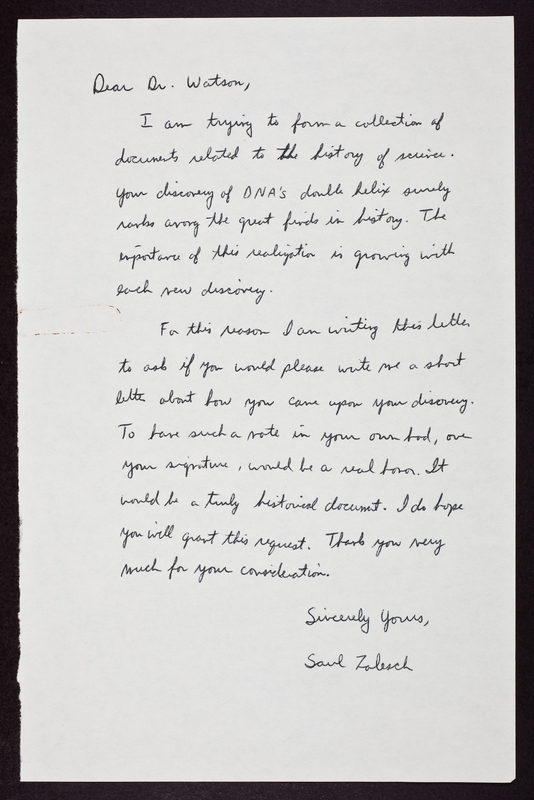 Dear Dr. Watson,
I am trying to form a collection of
documents related to the history of science.
Your discovery of DNA's double helix surely
ranks among the great finds in history. The
importance of this realization is growing with
each new discovery.
For this reason I am writing this letter
to ask if you would please write me a short
letter about how you came upon your discovery.
To have such a note in your own hand, over
your signature, would be a real honor. It
would be a truly historical document. I do hope
you will grant this request. Thank you very
much for your consideration.
Sincerely Yours,
Saul Zalesch